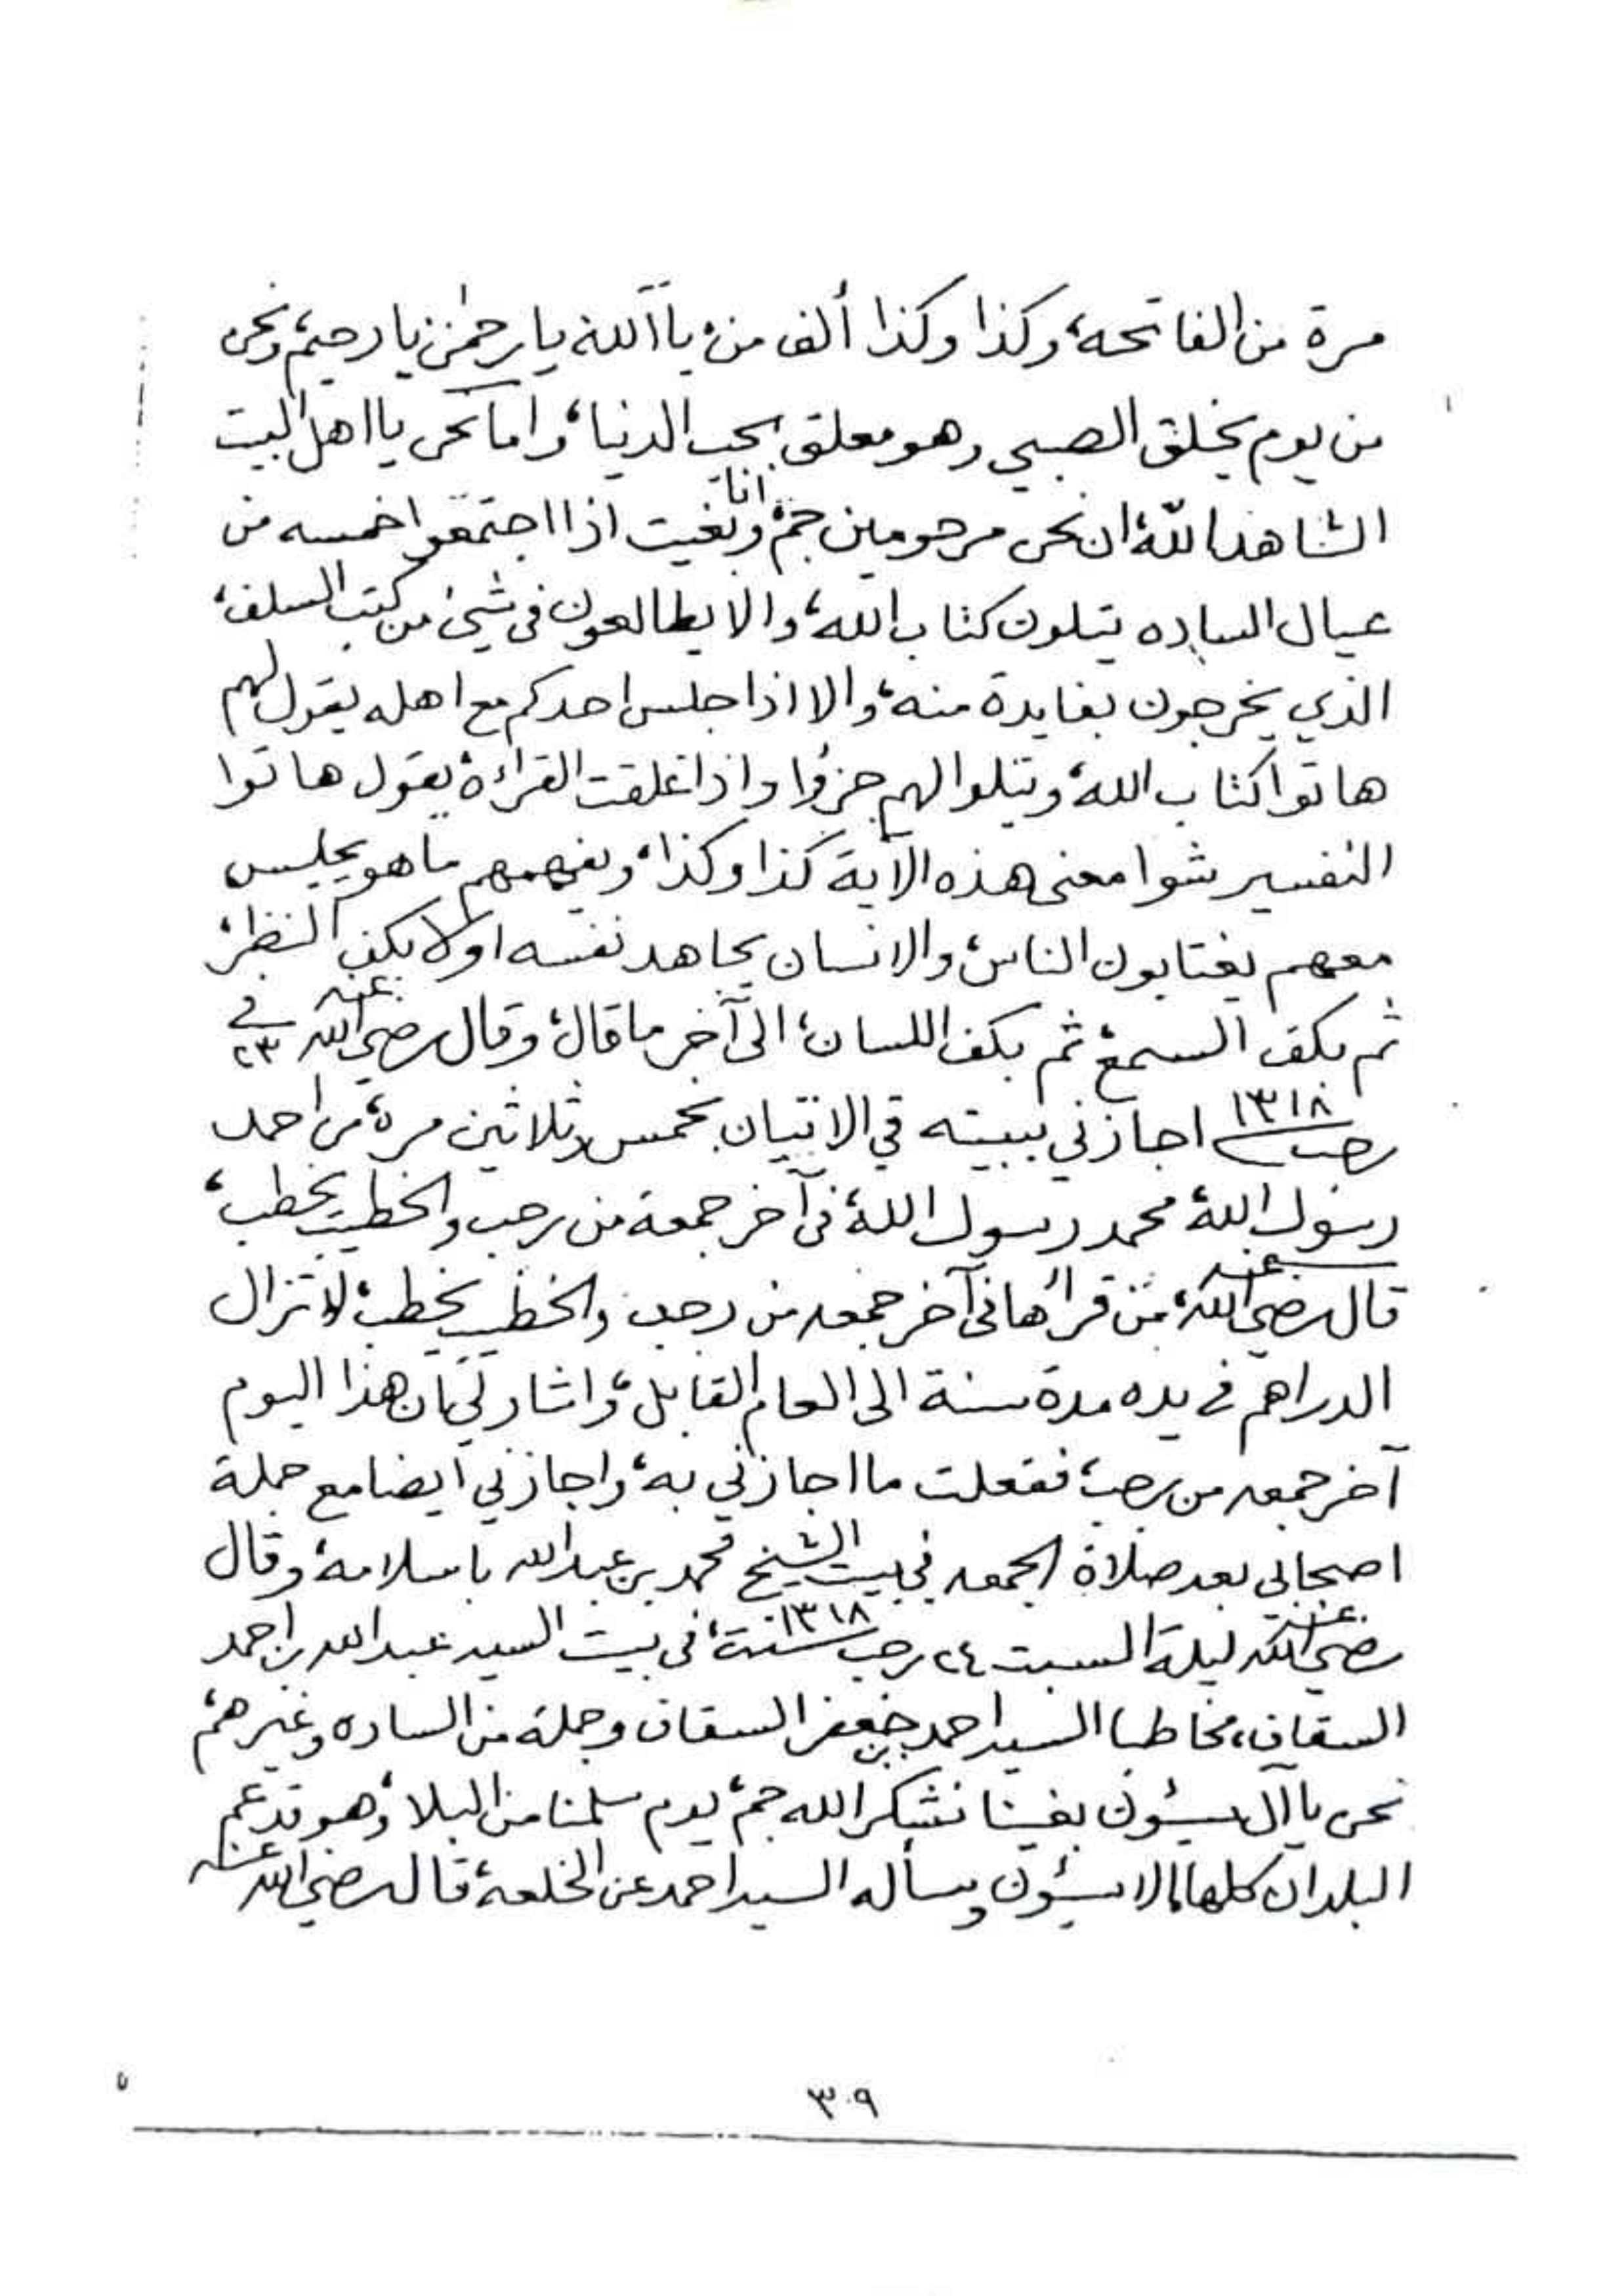 مرة من الفاتحه، وكذا وكذا ألف من، يا الله يا رحمن يا رحيم، ونحن
من يوم يخلق الصبي وهو معلق بحب الدنيا، واما نحن يا اهل البيت
الشاهد لله، ان نحن مرحومين جم، وانا بغيت اذا اجتمعوا خمسه من
عيال الساده يتلون كتاب الله، والا يطالعون في شيئ من كتب السلف،
الذي يخرجون بفايدة منه، والا اذا جلس احدكم مع اهله يقول لهم
هاتوا كتاب الله، ويتلوا لهم جزؤا واذا غلقت القراءة، يقول هاتوا
التفسير شوا معنى هذه الآية كذا وكذا، ويفهمهم ما هو يجلس
معهم يغتابون الناس، والانسان يجاهد نفسه اولا يكف النظر،
ثم يكف السمع، ثم يكف اللسان، الى آخر ما قال، وقال رضي الله عنه في ٢٣
رجب ١٣١٨ اجازني ببيته في الاتيان بخمس وثلاثين مرة، من احمد
رسول الله، محمد رسول الله، في آخر جمعة من رجب والخطيب يخطب،
قال رضي الله عنه، من قرأها في آخر جمعه من رجب والخطيب يخطب، لا تزال
الدراهم في يده مدة سنة الى العام القابل، واشار لي بان هذا اليوم
آخر جمعه من رجب، ففعلت ما اجازني به، واجازني ايضا مع جملة
اصحابي بعد صلاة الجمعه في بيت الشيخ محمد بن عبدالله باسلامة، وقال
رضي الله عنه ليلة السبت ٢٤ رجب سنة ١٣١٨، في بيت السيد عبدالله بن احمد
السقاف، مخاطبا السيد احمد بن جعفر السقاف وجملة من الساده وغيرهم،
نحن يا آل سيئون بغينا نشكر الله جم، يوم سلمنا من البلاء، وهو قد عم
البلدان كلها الا سيئون وسأله السيد احمد عن الخلعة، قال رضي الله عنه
٣٠٩